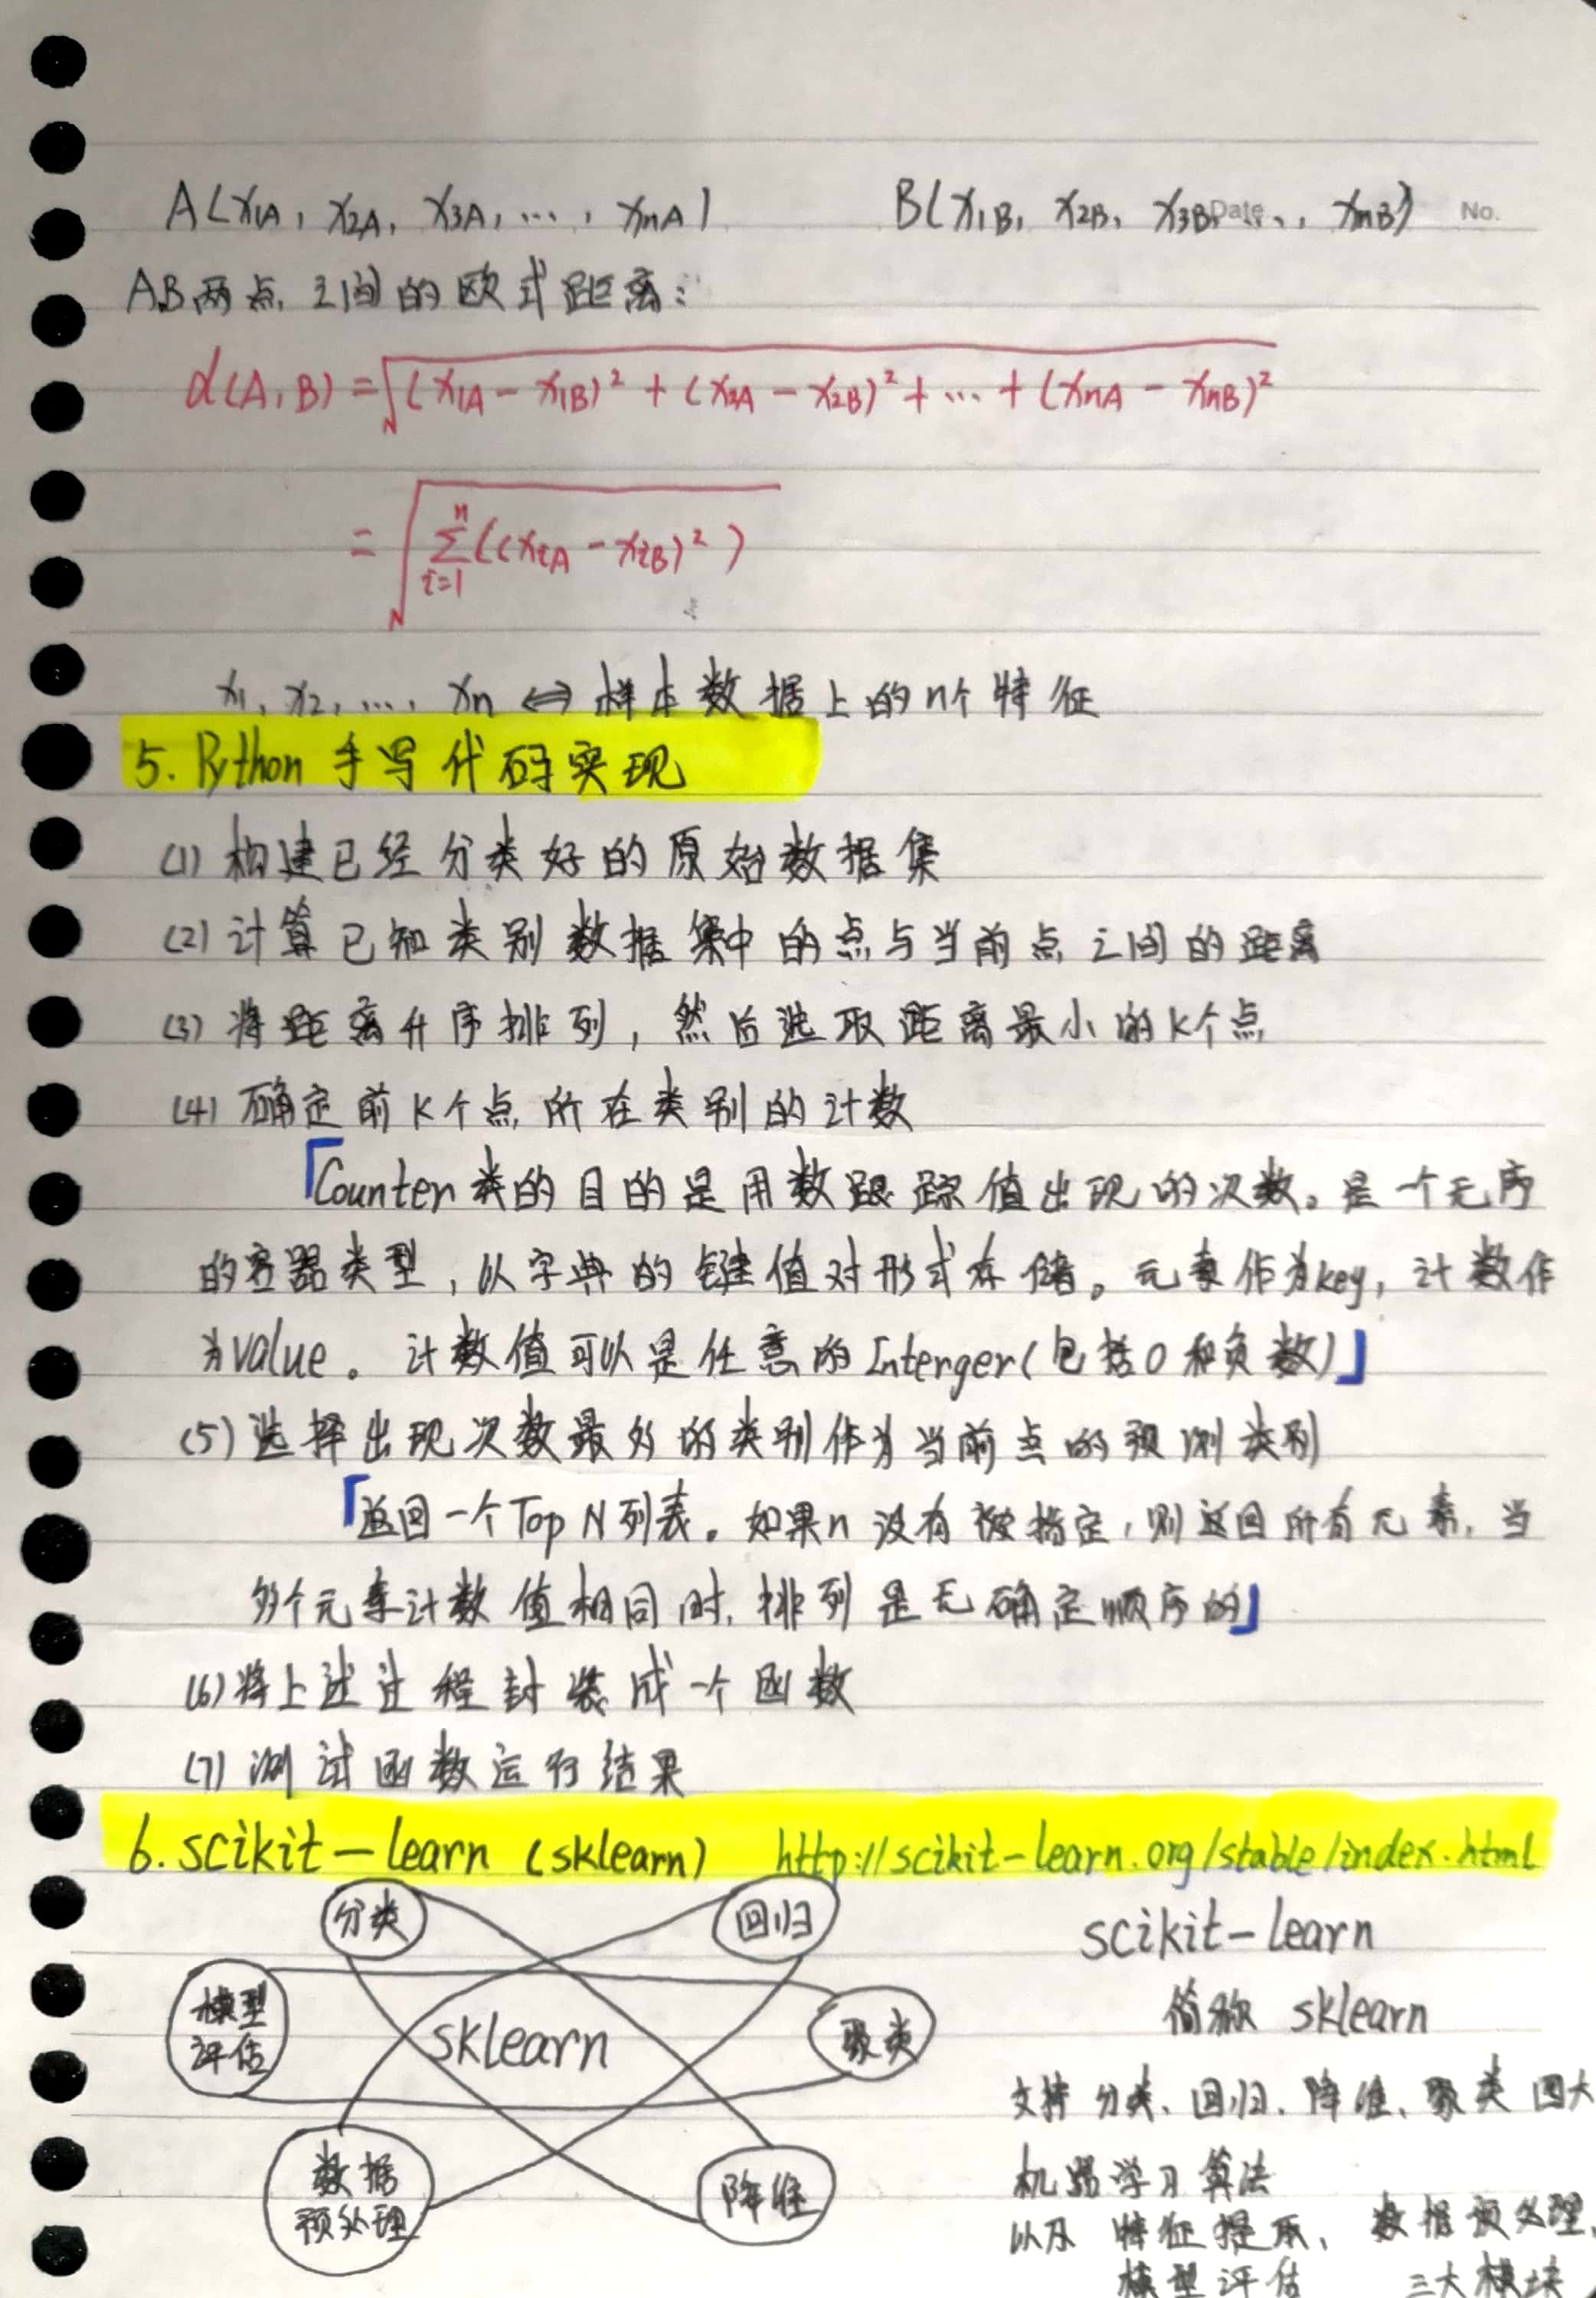 A(x1A, x2A, x3A, ..., xnA)  B(x1B, x2B, x3B, ..., xnB)
Date  No.
AB两点之间的欧式距离:
d(A,B) = √((x1A - x1B)² + (x2A - x2B)² + ... + (xnA - xnB)²)
= √(∑ⁿᵢ₌₁((xiA - xiB)²))
x1, x2, ..., xn ⇔ 样本数据上的n个特征
5. Python 手写代码实现
(1) 构建已经分类好的原始数据集
(2) 计算已知类别数据集中的点与当前点之间的距离
(3) 将距离升序排列,然后选取距离最小的K个点
(4) 确定前K个点所在类别的计数
「Counter类的目的是用数跟踪值出现的次数。是一个无序
的容器类型,以字典的键值对形式存储。元素作为key,计数作
为value。计数值可以是任意的Interger(包括0和负数)」
(5) 选择出现次数最多的类别作为当前点的预测类别
「返回一个Top N列表。如果n没有被指定,则返回所有元素,当
多个元素计数值相同时,排列是无确定顺序的」
(6) 将上述过程封装成一个函数
(7) 测试函数运行结果
6. scikit-learn (sklearn)  http://scikit-learn.org/stable/index.html
分类  回归
模型
评估
sklearn
聚类
数据
预处理
降维
scikit-learn
简称 sklearn
支持分类、回归、降维、聚类四大
机器学习算法
以及 特征提取、数据预处理、
模型评估 三大模块